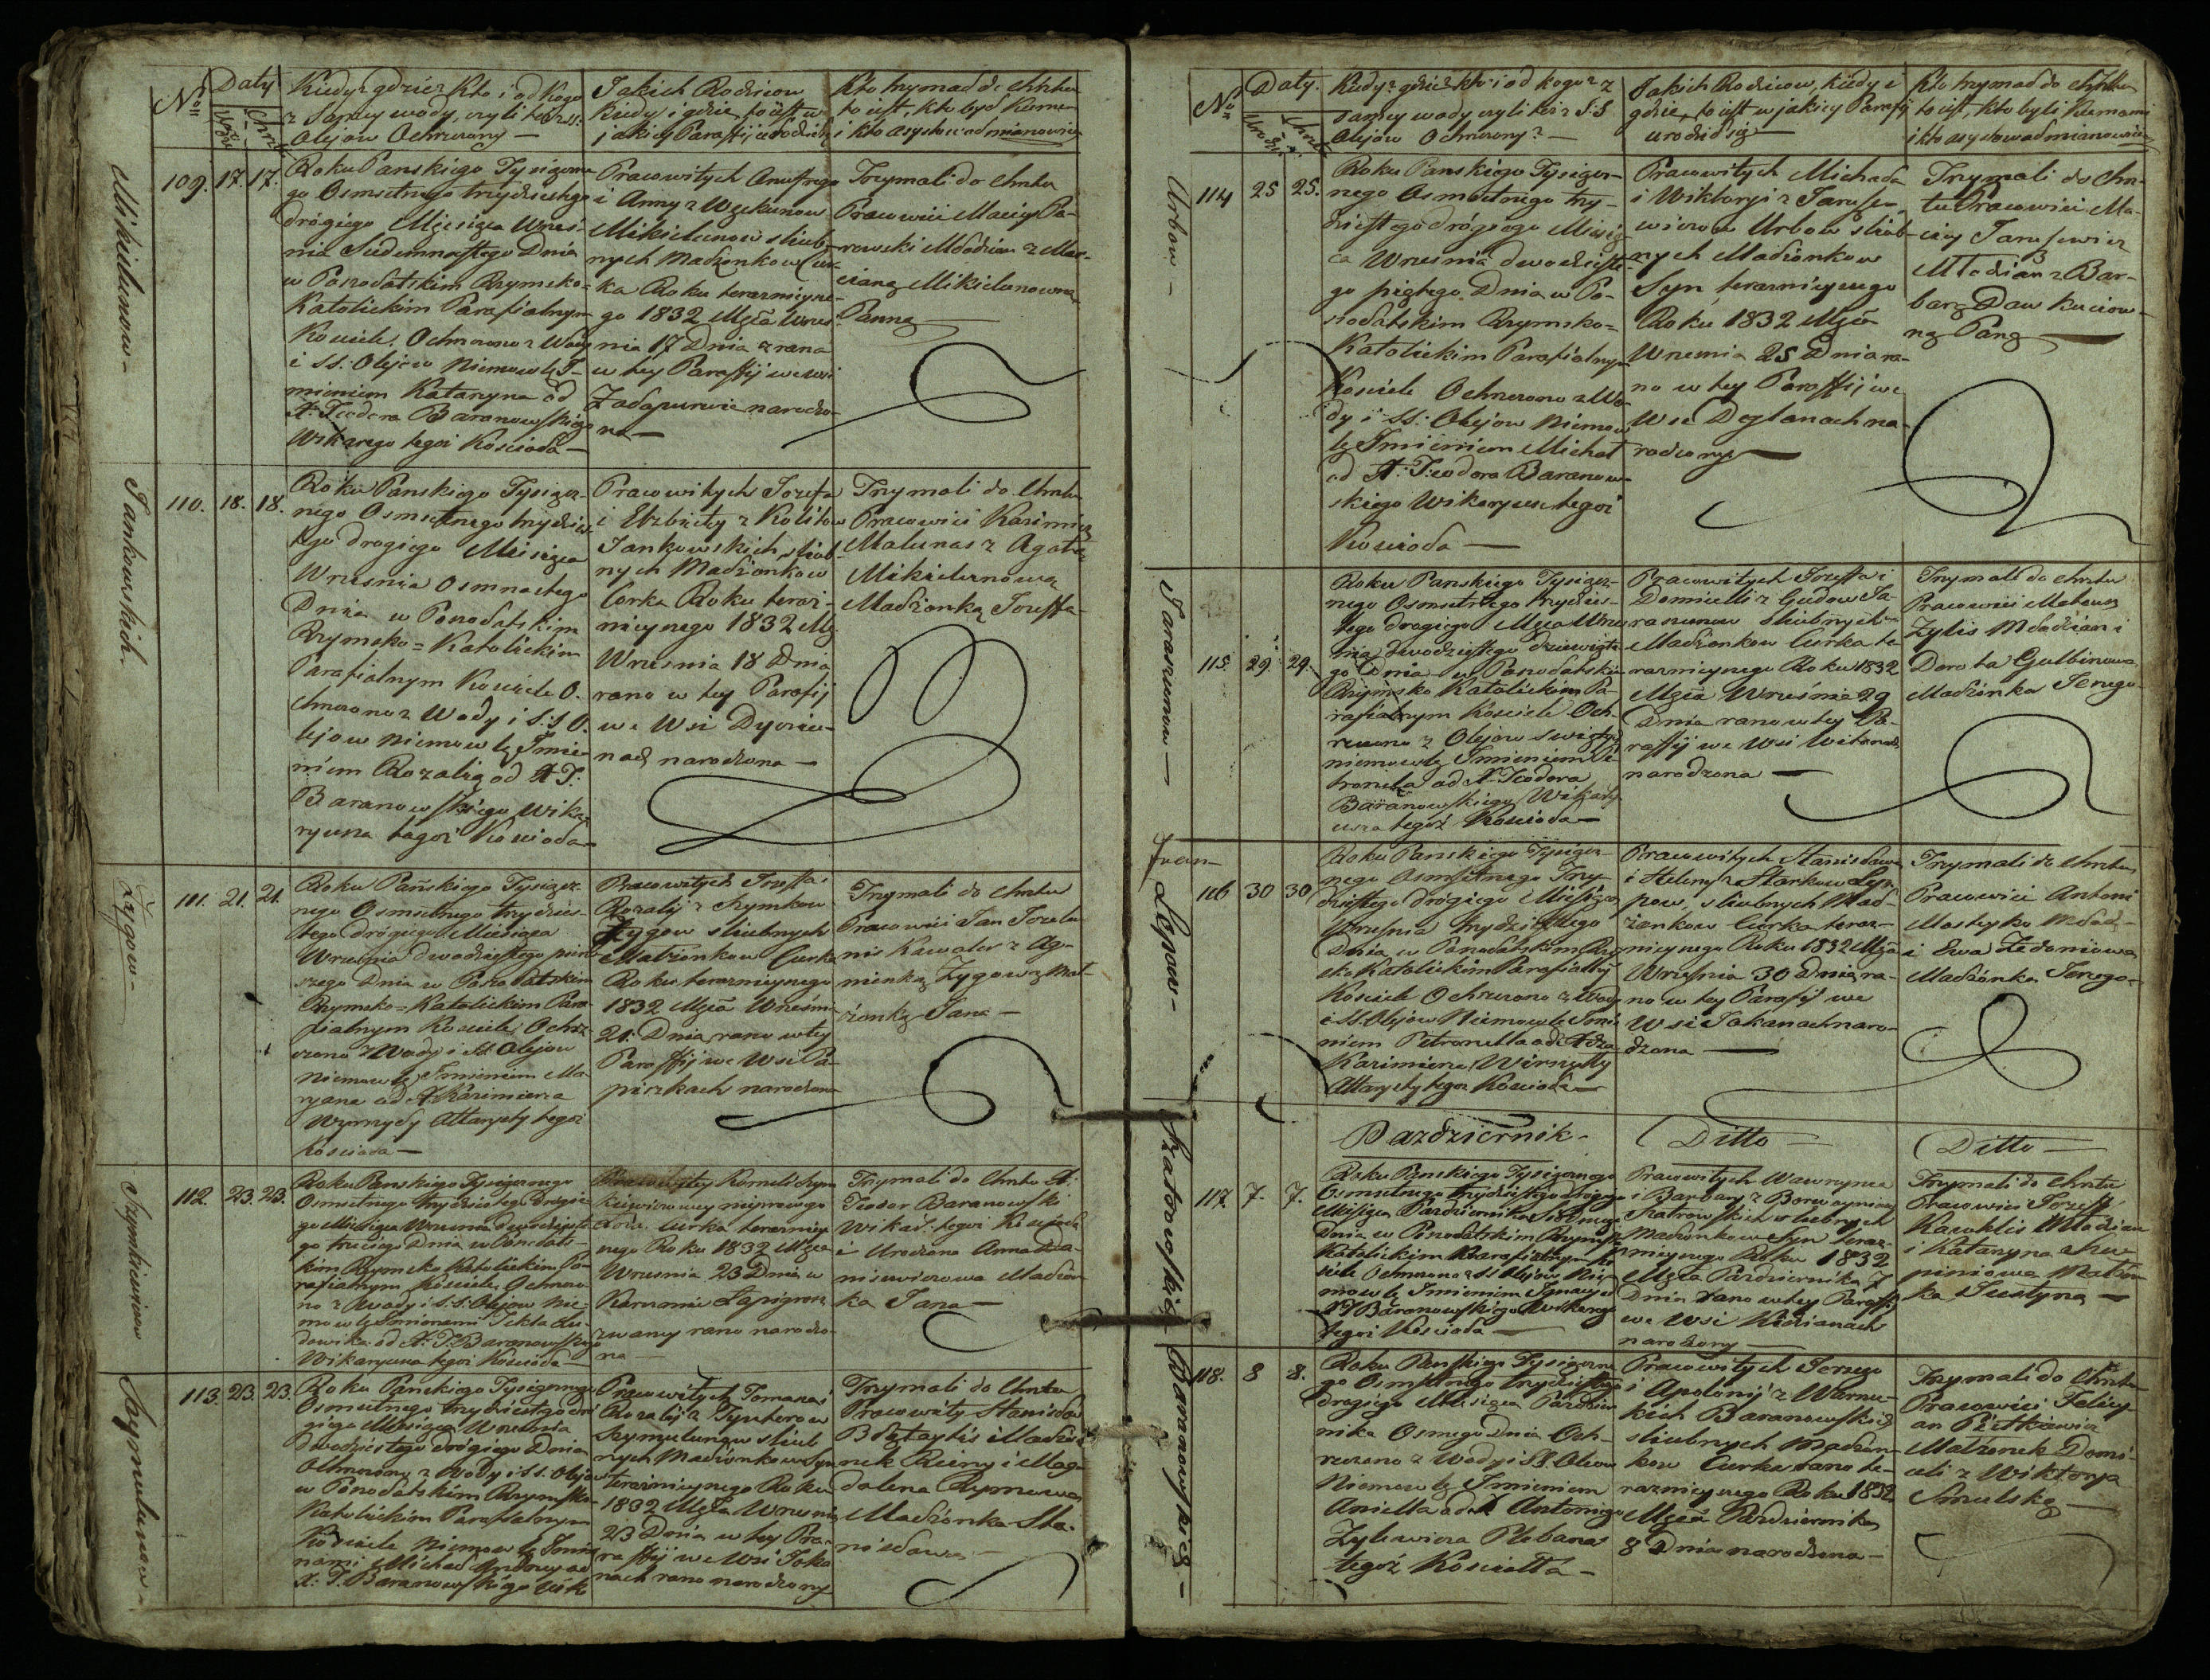 No
Daty
Urodz:
Chrztu
Kiedy? gdzie? Kto i od Kogo
z Samey wody, czyli też z SS.
Olejow Ochrzczony —
Jakich Rodzicow
kiedy i gdzie to iest w
jakiey Paraffij urodził się
Kto trzymał do Chrztu
to iest, kto był Kumem
i kto asystował mianowicie
Mikielunow —
109. 17. 17.
Roku Panskiego Tysiączne-
go Osmsetnego trzydziestego
drógiego Miesiąca Wrześ-
nia Siedemnastego Dnia
w Ponodatskim Rzymsko-
Katolickim Parafialnym
Kosciele, Ochrzczono z Wody
i SS: Olejow Niemowle I-
mieniem Katarzyna od
X: Teodora Baranowskiego
Wikarego tegoż Kościoła —
Pracowitych Anufrego
i Anny z Wyekunow
Mikielunow slub-
nych Małżonkow Cur-
ka Roku terazniysze-
go 1832 Mzca Wrześ-
nia 17 Dnia z rana
w tey Paraffij we wsi
narodzo-
na —
Trzymali do Chrztu
Pracowici Maciey Pa-
rowski Młodzian z Mar-
cianą Mikielunowną
Panną
Jankowskich.
110. 18. 18.
Roku Panskiego Tysiącz-
nego Osmsetnego trzydzies-
tego drogiego Miesiąca
Wrzesnia osmnastego
Dnia w Ponodatskim
Rzymsko=Katolickim
Parafialnym Kosciele O-
chrzczono z Wody i S.S O-
lejow niemowle Imie-
niem Rozalią od X T.
Baranowskiego Wika-
ryusza tegoż Kościoła
Pracowitych Jozefa
i Elzbiety z Kolitow
Jankowskich slub-
nych Małżonkow
Corka Roku teraz-
nieyszego 1832 Mż
Wrzesnia 18 Dnia
rano w tey Parafij
we Wsi
narodzona —
Trzymali do Chrztu
Pracowici Kazimierz
Malunas z Agatą
Mikielunową
Małżonką Joseffa
Żygow —
111. 21. 21.
Roku Pańskiego Tysiącz-
nego Osmsetnego trzydzies-
tego drógiego Miesiąca
Wrzesnia dwadziestego pierw-
szego Dnia w Ponodatskim
Rzymsko=Katolickim Para-
fialnym Kosciele, Ochrz-
czono z Wody i SS Olejow
Niemowle, Imieniem Ma-
ryana od X Kazimierza
Wyrnydy Altarysty tegoż
Kosciola —
Pracowitych Joseffa i
Rozalij z Szymkow
Zygow sliubnych
Małżonkow Curka
Roku terazniejszego
1832 Mzca Wrześni
21. Dnia, rano w tey
Paraffij we Wsi Pa-
pirzkach narodzona
Trzymali do Chrztu
Pracowici Jan Jozelu-
nis Kawaler z Ag-
nienką Zygową Mał-
żonką Jana —
Szymkiewiczow
112. 23. 23.
Roku Panskiego Tysiącznego
Osmsetnego trzydziestego drogie-
go Miesiąca Wrzesnia dwadzieste-
go trzeciego Dnia w Ponodats-
kim Rzymsko Katolickim Pa-
rafialnym Kosciele Ochrzczo-
no z Wody i S.S. Olejow Nie-
mowle Imionami Tekla Lu-
dowika od X: T: Baranowskiego
Wikaryusza tegoż Kościoła —
Korneli Szym-
kiewiczowey nieprawego
Łoża Curka terazniey-
szego Roku 1832 Mzca
Wrzesnia 23 Dnia w
Karczmie Łapigroz
zwaney rano narodzo-
na —
Trzymali do Chrztu X:
Teodor Baranowski
Wikar: tegoż Kosciola
i Urodzona Anna Da-
nisewiczowa Małżon-
ka Jana —
Szymulunow —
113. 23. 23.
Roku Panskiego Tysiącznego
Osmsetnego trzydziestego dró-
giego Miesiąca Wrzesnia
dwadziestego drógiego Dnia
Ochrzczony z Wody i S S. Olejow
w Ponodatskim Rzymsko-
Katolickim Parafialnym
Kościele Niemowle Imio-
nami Michał od
X: T. Baranowskiego Wik
Pracowitych Tomasza i
Rozalij z Tynterow
Szymulunow sliub
nych Małżonkow Syn
terazniejszego Roku
1832 Mzca Wrzesnia
23 Dnia w tey Pa-
raffij we Wsi Joka-
nach rano narodzony
Trzymali do Chrztu
Pracowity Stanisław
Błażaytis Małżo-
nek Reiny i Mag-
dalena Rymowa
Małżonka Sta-
nisława
No
Daty.
Urodz
Chrztu
Kiedy? gdzie kto i od kogo? z
samey wody czyli też z S.S
Olejów Ochrzczony? —
Jakich Rodzicow, kiedy i
gdzie, to iest w jakiey Parafij
urodził się —
Kto trzymał do Chrztu
to iest, kto byli Kumami
i kto asystował mianowicie
Urbow —
114 25 25.
Roku Panskiego Tysiącz-
nego Osmsetnego trzy-
dziestego drógiego Miesią-
ca Wrzesnia dwadzieste-
go piątego Dnia w Po-
nodatskim Rzymsko=
Katolickim Parafialnym
Kosciele Ochrzczono z Wo-
dy i SS: Olejow Niemow-
le Imieniem Michał
od X: Teodora Baranow-
skiego Wikaryusza tegoż
Kościoła —
Pracowitych Michała
i Wiktoryi z Jaruse-
wiczow Urbow sliub-
nych Małżonkow
Syn, terazniejszego
Roku 1832 Mzca
Wrzesnia 25 Dnia ra-
no w tey Paraffij we
Wsi Deglanach na-
rodzony —
Trzymali do Chrz-
tu Pracowici Ma-
ciey Jarusewicz
Młodzian z Bar-
barą Dawkuciow-
ną Paną —
Tarasiunow —
115. 29. 29.
Roku Panskiego Tysiącz-
nego Osmsetnego trzydzies-
tego drogiego Mzca Wrzes-
nia dwadziestego dziewiąte-
go Dnia w Ponodatskim
Rzymsko Katolickim Pa-
rafialnym Kosciele Och-
rzczono z Olejow swiętych
niemowle Imieniem Pe-
tronela od X Teodora
Baranowskiego Wikary-
usza tegoż Kosciola —
Pracowitych Joseffa i
Domicelli z Gudow Ta-
rasunow sliubnych
Małżonkow Curka te-
razniejszego Roku 1832
Mzca Września 29
Dnia rano w tey Pa-
raffij we Wsi Witunach
narodzona —
Trzymali do Chrztu
Pracowici Mateusz
Zylis Młodzian i
Dorota Gulbinowa
Małżonka Jerzego
Lepow —
116 30 30
Roku Panskiego Tysiącz-
nego Osmsetnego Trzy-
dziestego drógiego Miesiąca
Wrzesnia trzydziestego
Dnia w Ponodatskim Rzym-
sko Katolickim Parafialnym
Kosciele Ochrzczono z Wody
i SS. Olejow Niemowle Imie-
niem Petronella od X dza
Kazimierza Wirnyłły
Altarysty tegoż Kosciola —
Pracowitych Stanisława
i Heleny z Starkow Le-
pow, sliubnych Mał-
żonkow Curka teraz-
niejszego Roku 1832 Mzca
Wrzesnia 30 Dnia ra-
no w tey Parafij we
Wsi Jakanach naro-
dzona —
Trzymali do Chrztu
Pracowici Antoni
Mosteyko Młodz-
i Ewa Żedoniowa
Małżonka Jerzego —
Pazdziernik —
Ditto —
Ditto —
Szatrowskich —
117. 7. 7.
Roku Panskiego Tysiącznego
Osmsetnego trzydziestego drógiego
Miesiąca Pazdziernika Siodmego
Dnia w Ponodatskim Rzymsko
Katolickim Parafialnym Ko-
sciele Ochrzczono z SS Olejow Nie-
mowle Imieniem Ignacy od
X T Baranowskiego Wikarego
tegoż Kosciola —
Pracowitych Wawrzynca
i Barbary z
Szatrowskich sliubnych
Małżonkow Syn teraz-
niejszego Roku 1832
Mzca Pazdziernika 7
Dnia rano w tey Paraffij
we Wsi Kidzianach
narodzony
Trzymali do Chrztu
Pracowici Joseff
Karoklis Młodzian
i Katarzyna
Małżon-
ka Justyna —
Baranowskich —
118. 8 8.
Roku Panskiego Tysiączne-
go Osmsetnego trzydziestego
drogiego Miesiąca Pazdzier-
nika Osmego Dnia Och-
rzczono z Wody i SS. Olejow
Niemowle Imieniem
Aniella od X Antoniego
Zylewicza Plebana
tegoż Kosciolla —
Pracowitych Jerzego
i Apolonij z Warnec-
kich Baranowskich
sliubnych Małżon-
kow Curka rano te-
razniejszego Roku 1832
Mzca Pazdziernika
8 Dnia narodzona —
Trzymali do Chrztu
Pracowici Felicy-
an Pietkiewicz
Małżonek Domi-
celi z Wiktoryą
Smulską —